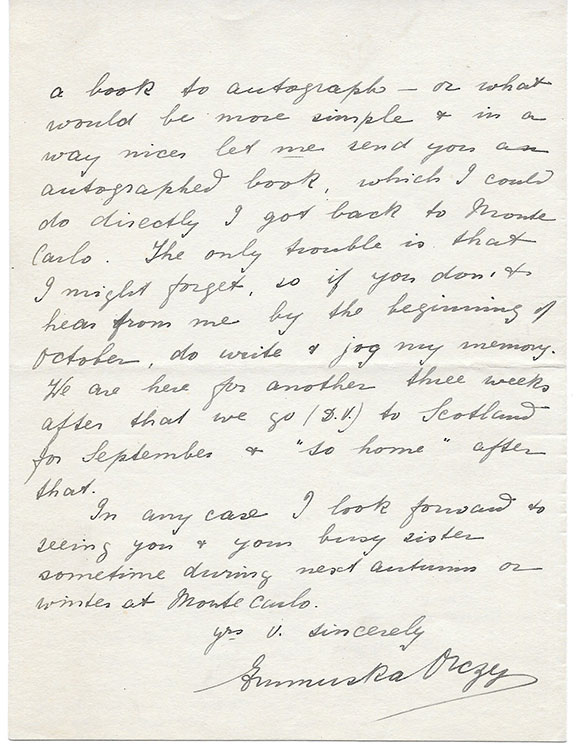 a book to autograph – or what
would be more simple & in a
way nicer let me send you an
autographed book, which I could
do directly I got back to Monte
Carlo. The only trouble is that
I might forget, so if you don't
hear from me by the beginning of
October, do write & jog my memory.
We are here for another three weeks
after that we go (D.V.) to Scotland
for September & "so home" after
that.
In any case I look forward to
seeing you & your busy sister
sometime during next autumn or
winter at Monte Carlo.
yrs v. sincerely
Emmuska Orczy